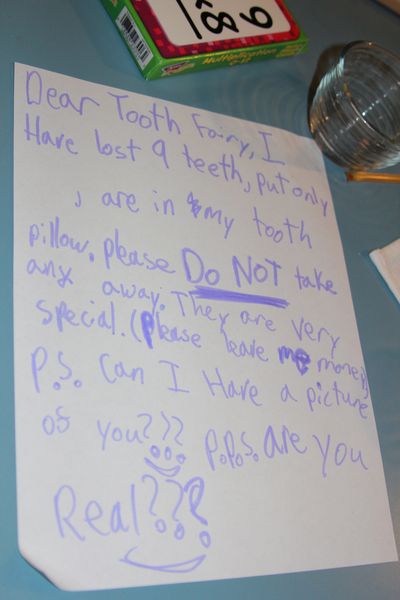 6
x 8
Multiplication
0-12
Dear Tooth Fairy, I
Have lost 9 teeth, put only
are in my tooth
pillow. please Do NOT take
any away. They are very
special. (please leave me money)
P.S. Can I Have a picture
of you???
P.P.S. are you
Real???